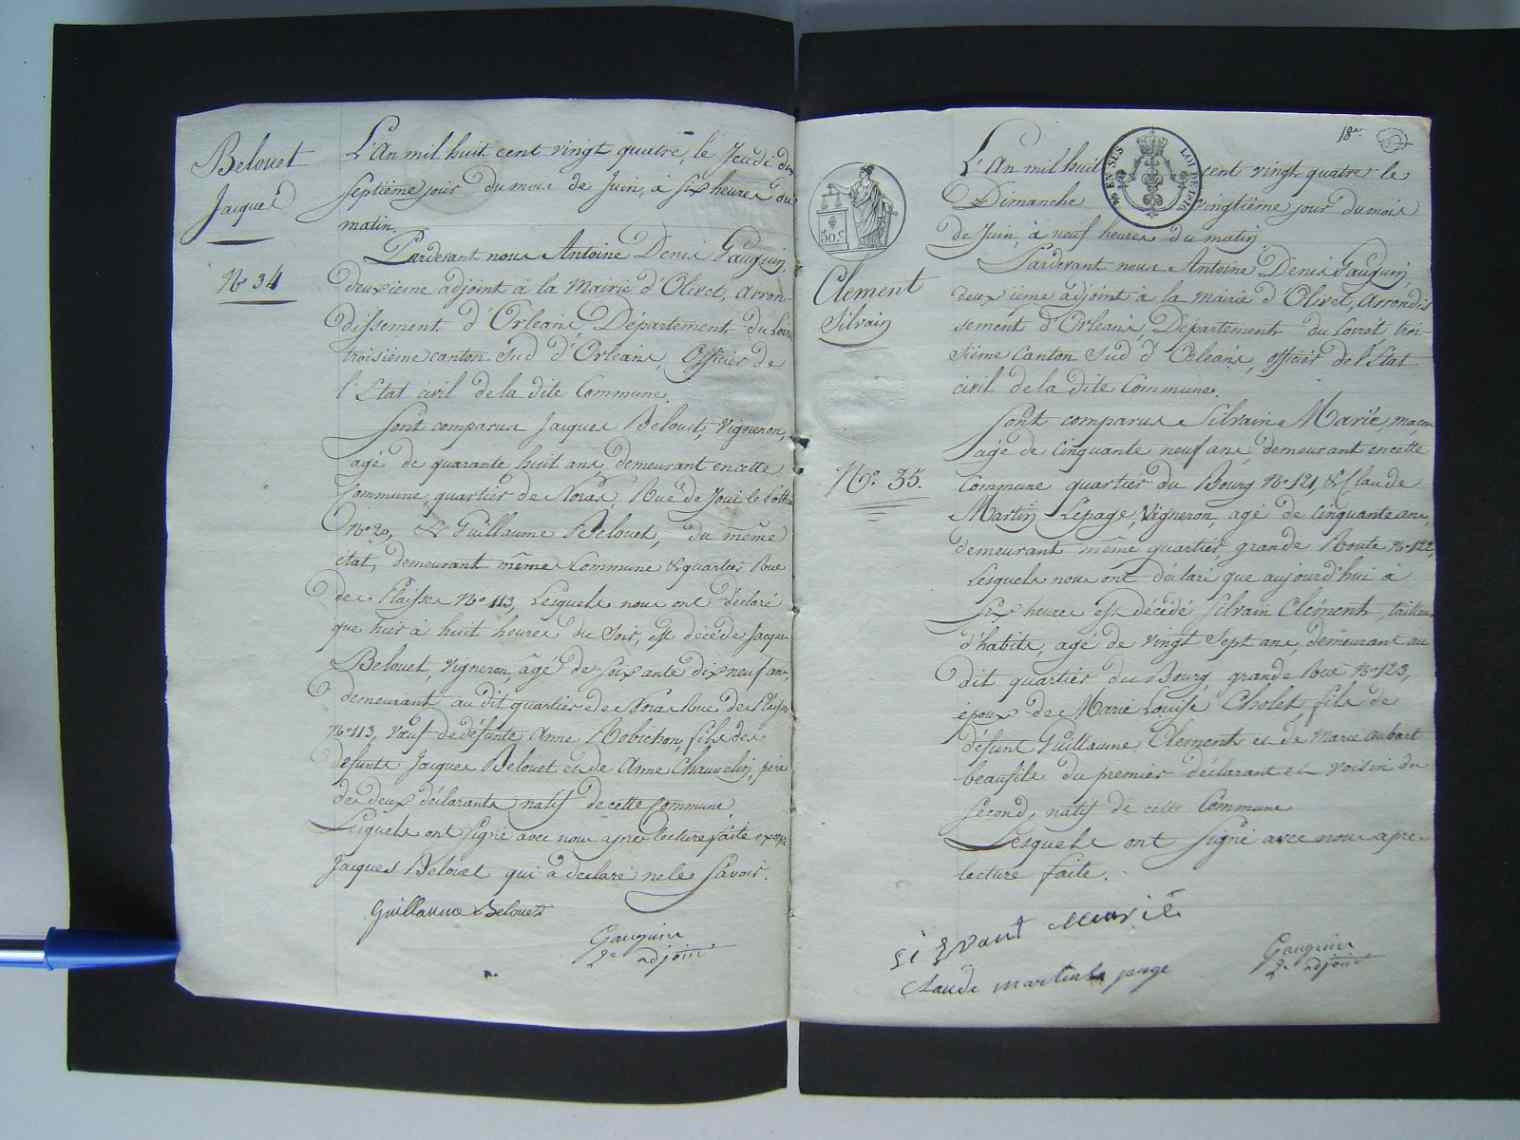 Belouet
Jacques
N° 34
L'An mil huit cent vingt quatre, le Jeudi dix
septième jour du mois de Juin, à six heures du
matin.
Pardevant nous Antoine Denis Gauguin,
deuxième adjoint à la Mairie d'Olivet, arron-
dissement d'Orléans, Département du Loiret
troisième canton Sud d'Orleans, Officier de
l'Etat civil de la dite Commune.
Sont comparus Jacques Belouet, Vigneron,
agé de quarante huit ans, demeurant en cette
Commune quartier de Noras, Rue de Joui le
N° 20, & Guillaume Belouet, du même
état, demeurant même Commune & quartier Rue
des N° 113, Lesquels nous ont déclaré
que hier à huit heures du soir, est décédé Jacques
Belouet, Vigneron, âgé de soixante dix neuf ans,
demeurant au dit quartier de Noras Rue des
N° 113, Veuf de défunte Anne Robichon, fils de
defunts Jacques Belouet et de Anne Chauvelin, père
des deux déclarants natif de cette Commune
Lesquels ont signé avec nous après lecture faite excepté
Jacques Belouet qui a declaré ne le savoir.
Guillaume Belouet
Gauguin
2e adjoint
18e
50 EN SUS
LOI DE 1816
50 c
Clement
Silvain
N° 35.
L'An mil huit cent vingt quatre le
Dimanche vingtième jour du mois
de Juin, à neuf heures du matin
Pardevant nous Antoine Denis Gauguin,
deuxième adjoint à la mairie d'Olivet, arrondis
sement d'Orleans Département du Loiret troi-
sième Canton Sud d'Orleans, officier de l'Etat
civil de la dite Commune.
Sont comparus Silvain Marié, maçon
agé de Cinquante neuf ans, demeurant en cette
Commune quartier du Bourg N° 121, & Claude
Martin Lepage, Vigneron, agé de Cinquante ans,
demeurant même quartier grande Route N° 122,
Lesquels nous ont déclaré que aujourd'hui à
six heures est décédé Silvain Clement, tailleur
d'habits, agé de vingt sept ans, demeurant au
dit quartier du Bourg grande Rue N° 123,
époux de Marie Louise Cholet, fils de
défunt Guillaume Clement et de Marie aubart
beaufils du premier déclarant et voisin du
second, natif de cette Commune
Lesquels ont signé avec nous après
lecture faite.
Marié
Claude martin le page
Gauguin
2e adjoint